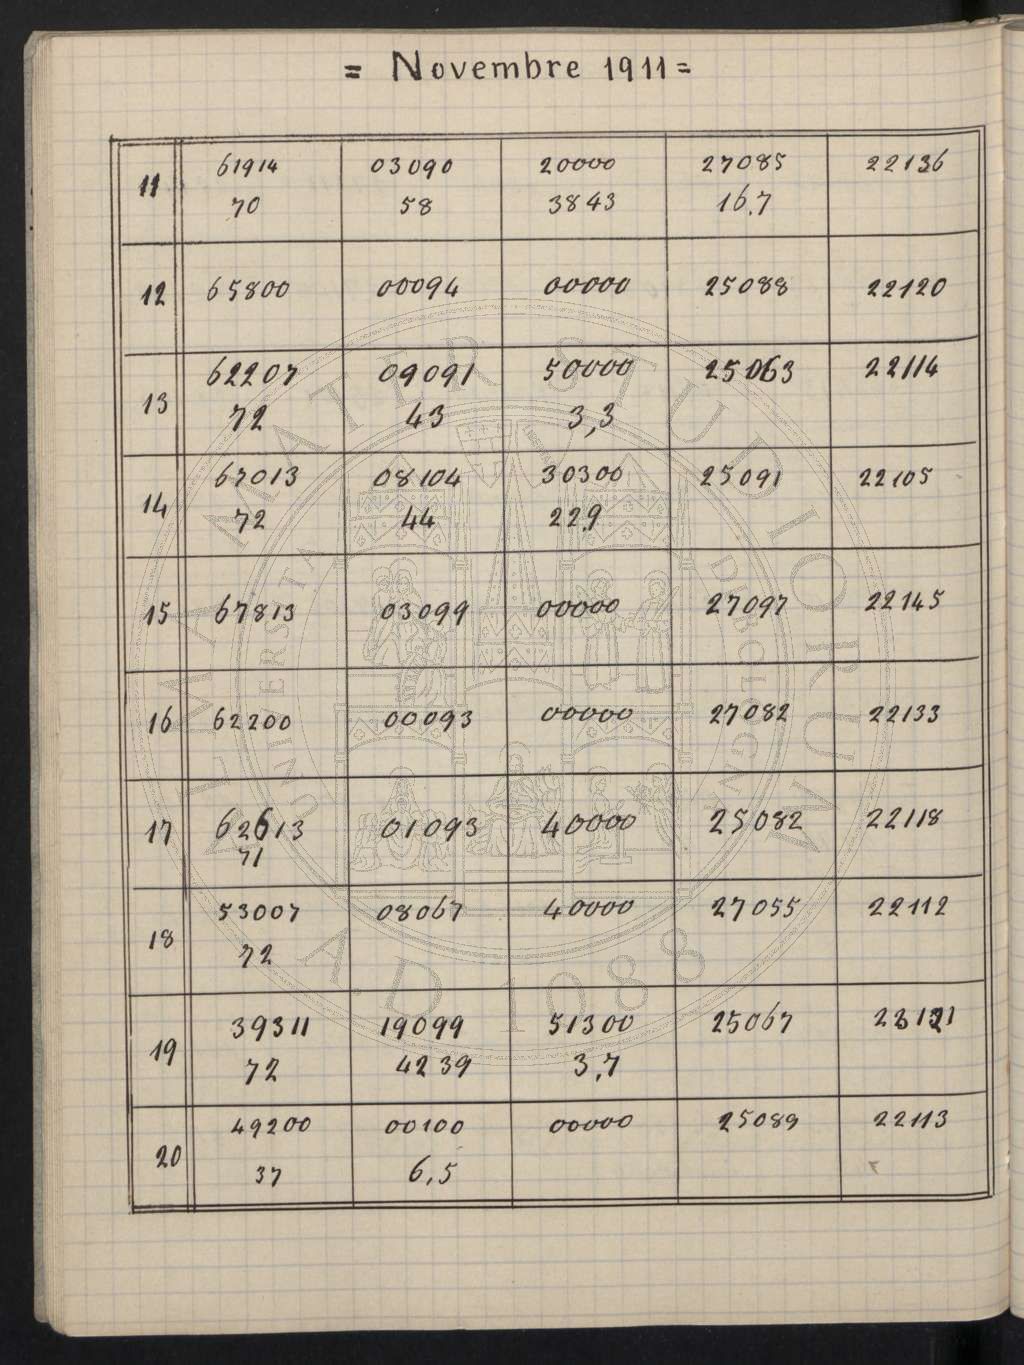 = Novembre 1911 =
11 61914 03090 20000 27085 22136
70 58 3843 16.7
12 65800 00094 00000 25088 22120
13 62207 09091 50000 25063 22114
72 43 3,3
14 67013 08104 30300 25091 22105
72 44 22.9
15 67813 03099 00000 27097 22145
16 62200 00093 00000 27082 22133
17 62613 01093 40000 25082 22118
71
18 53007 08067 40000 27055 22112
72
19 39311 19099 51300 25067
72 4239 3,7
20 49200 00100 00000 25089 22113
37 6,5
ALMA MATER STUDIORUM
A.D. 1088